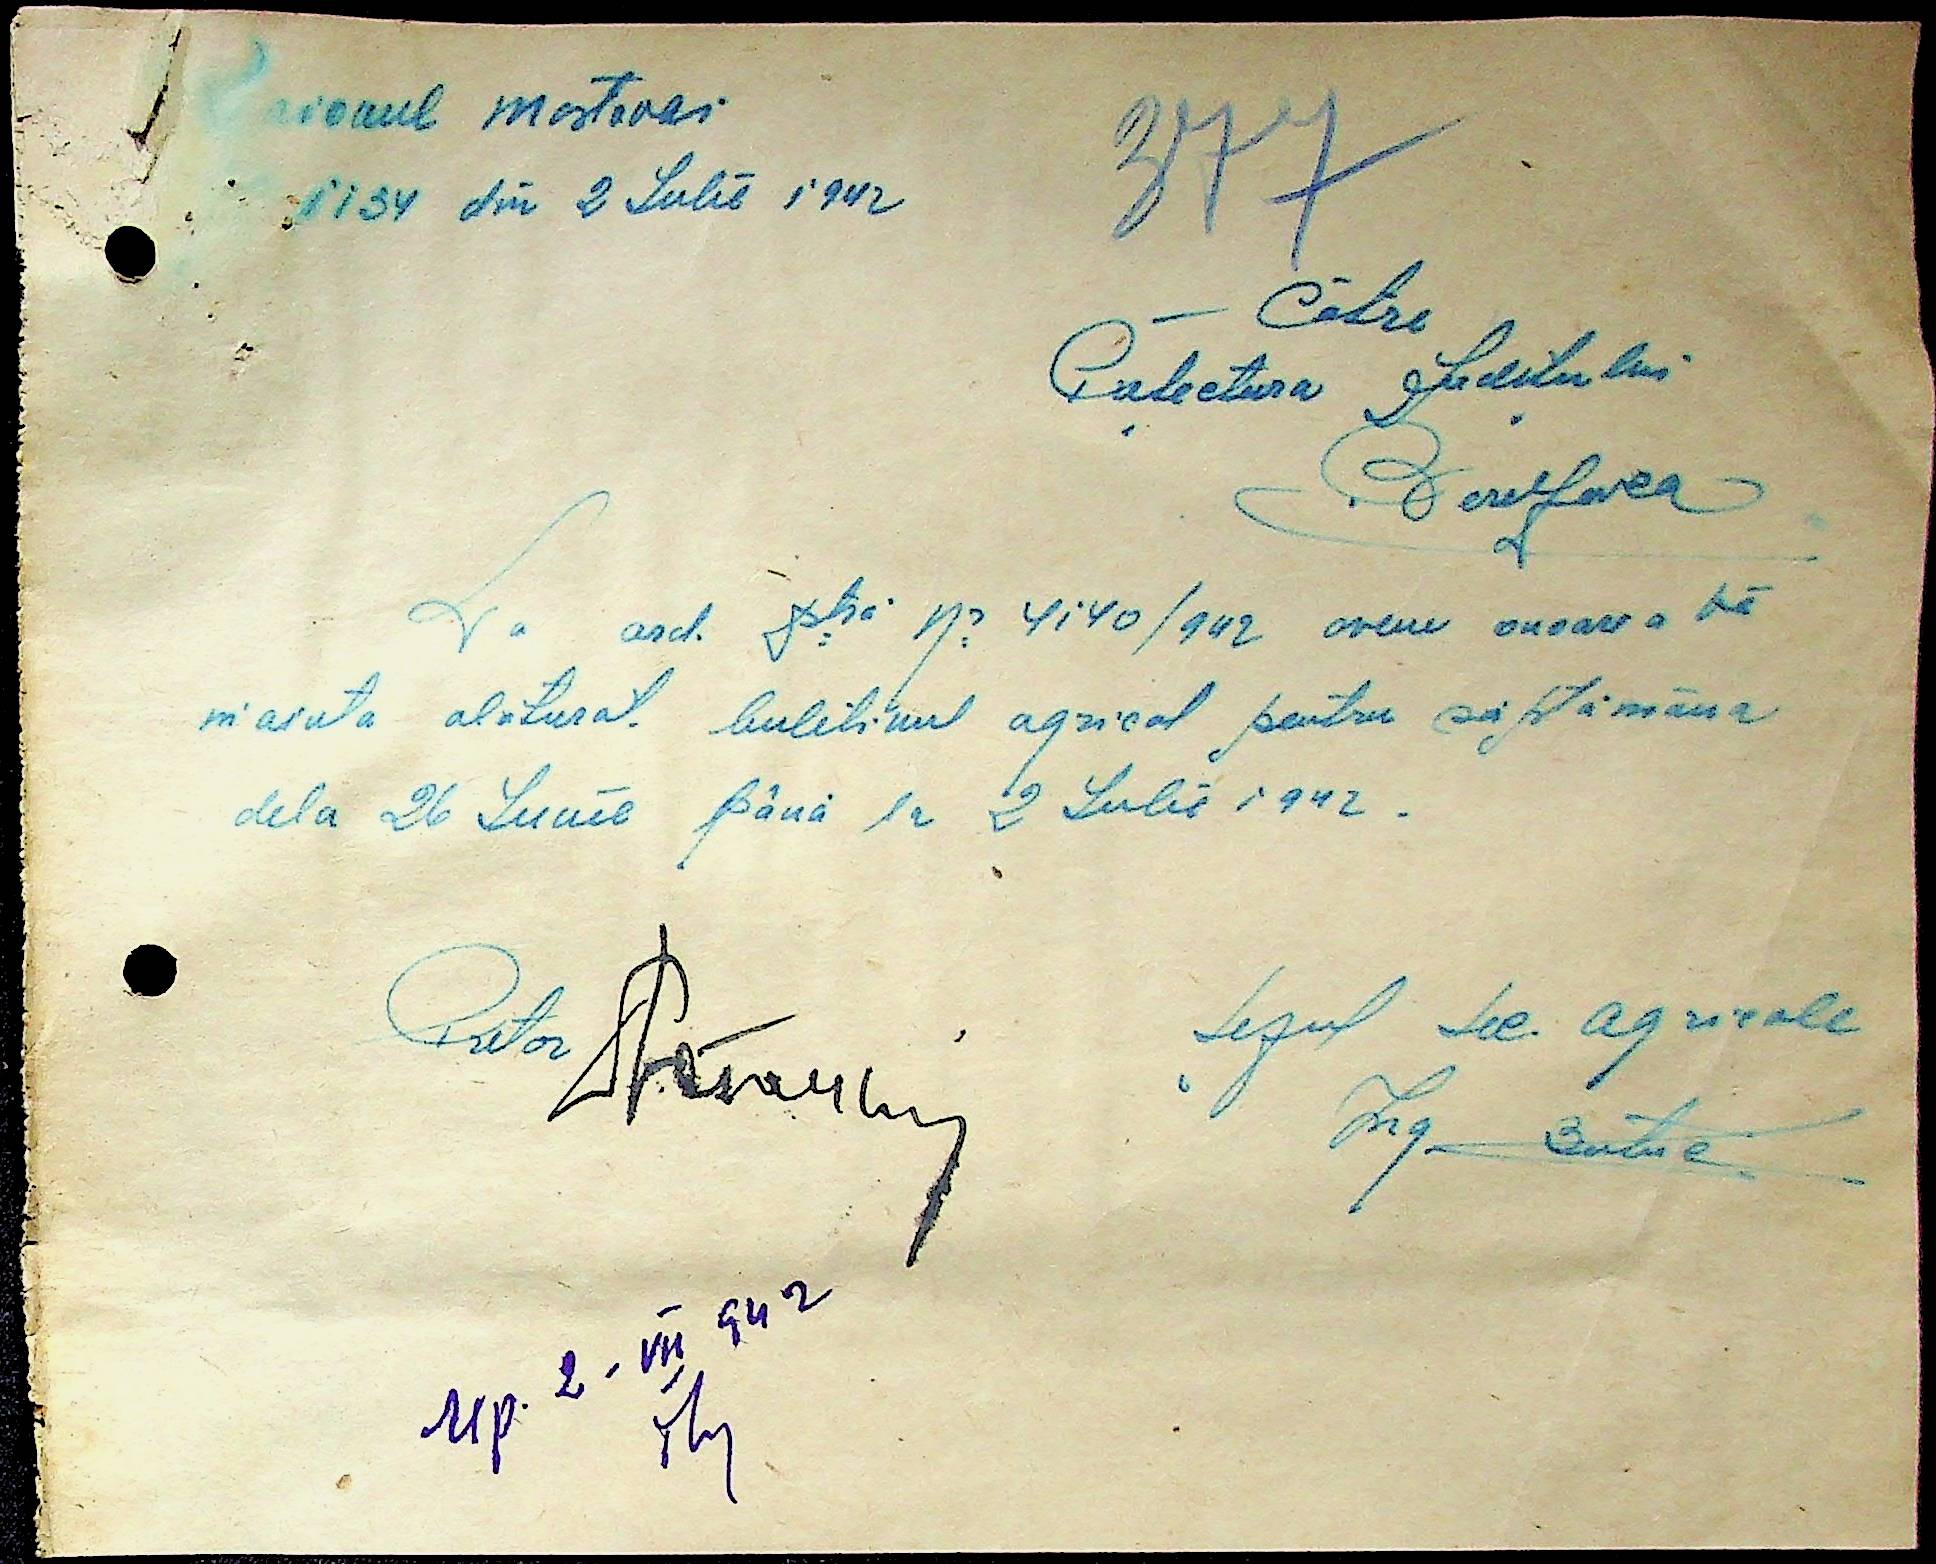 Raionul Mostovoi
1134 din 2 Iulie 1942
377
— Către
Prefectura Judetului
Berezovca
La ord. Dtră Nr. 4140/942 avem onoarea vă
inainta alăturat buletinul agricol pentru săptămâna
dela 26 Iunie până la 2 Iulie 1942.
Pretor
Șeful Sec. Agricole
Ing. Butuc
2. VII 942